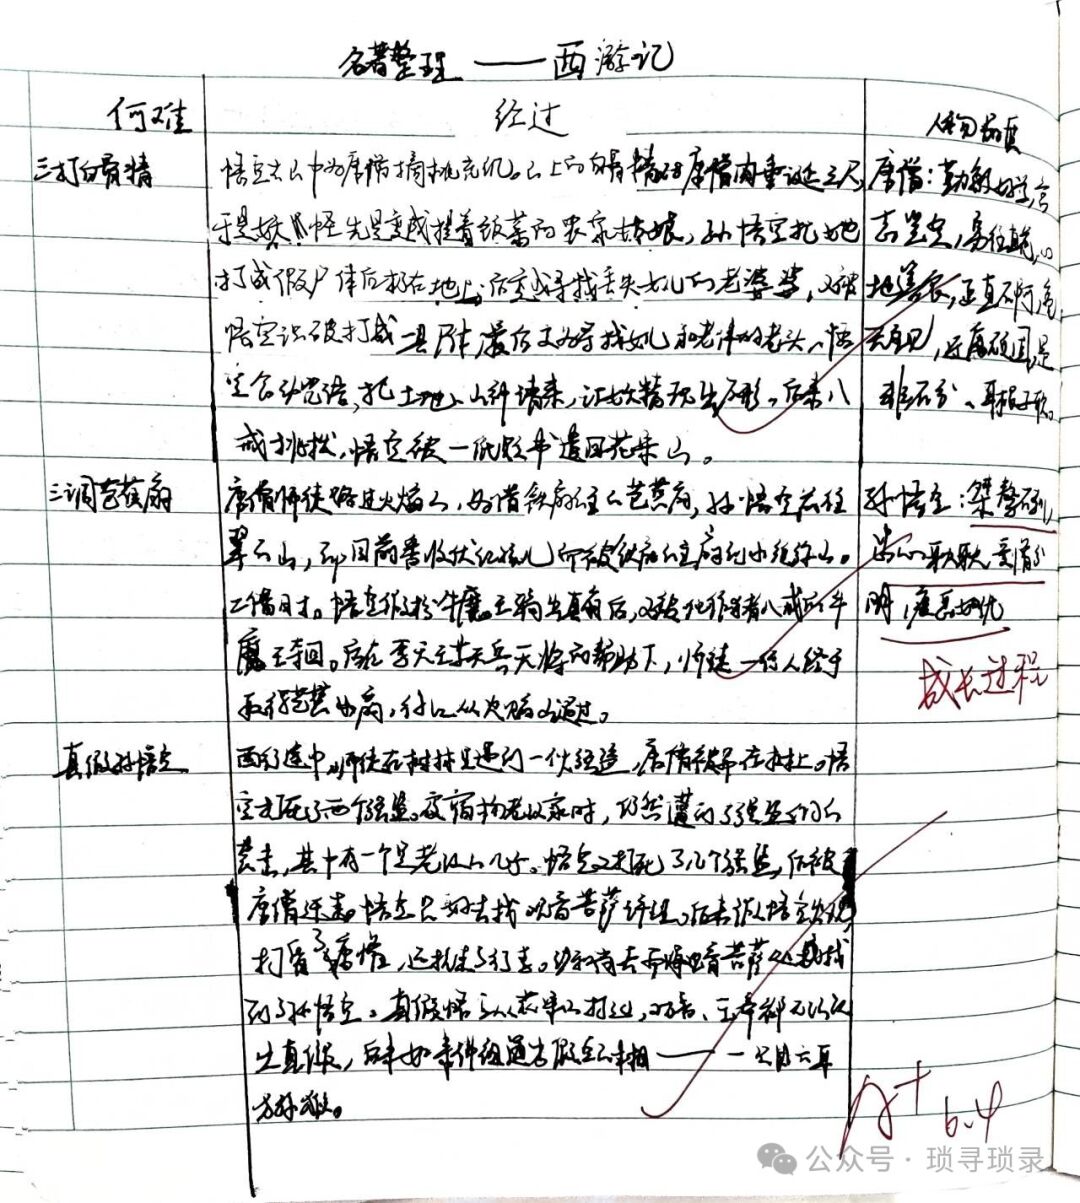 名著整理——西游记
何难 经过 人物品质
三打白骨精
悟空去山中为唐僧摘桃充饥。山上的白骨精对唐僧肉垂涎三尺,
于是妖怪先是变成提着饭菜的农家姑娘,孙悟空把她
打成假尸体后扔在地上,后变成寻找丢失女儿的老婆婆,又被
悟空识破打成一具尸体,最后变为寻找女儿和老伴的老头,悟
空念动咒语,把土地、山神请来,让妖精现出原形。后来八
戒挑拨,悟空被一纸贬书遣回花果山。
唐僧:勤敏好学,
志坚定,
地善良,正直不阿,
是
非不分、耳根子软。
三调芭蕉扇
唐僧师徒路过火焰山,好借铁扇公主芭蕉扇,孙悟空前往
翠云山,却因前番收伏红孩儿而被铁扇公主扇到小须弥山。
二借时。悟空假扮牛魔王骗出真扇后,又被化作猪八戒的牛
魔王拿回。后在李天王等天兵天将的帮助下,师徒一行人终于
取得芭蕉扇,得以从火焰山通过。
孙悟空:桀骜不驯,
爱憎分
明,疾恶如仇
成长过程
真假孙悟空
西行途中,师徒在树林里遇到一伙强盗,唐僧被吊在树上。悟
空打死了两个强盗。夜宿杨老汉家时,仍然遭到了强盗们的
袭击,其中有一个是老汉的儿子。悟空又打死了几个强盗,后被
唐僧逐走。悟空只好去找观音菩萨诉理。后来假悟空出现,
打昏了唐僧,还抢走了行李。沙和尚去南海观音菩萨处找
到了孙悟空。真假悟空从花果山打过,观音、玉帝都无法认
出真假,后来如来佛祖道出假悟空真相——一只六耳
猕猴。
A+
6.4
公众号·琐寻琐录